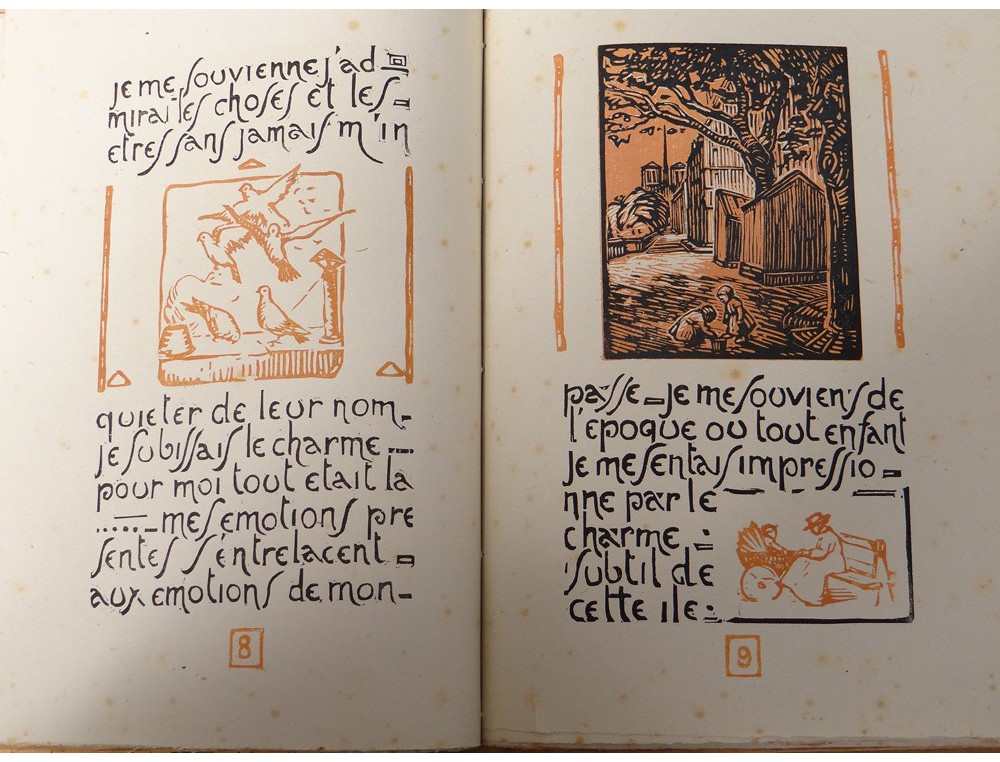 je me souvienne j'ad
mirai les choses et les
etres sans jamais m'in
quieter de leur nom
je subissais le charme
pour moi tout etait la
..... mes emotions pre
sentes s'entrelacent
aux emotions de mon
8
passe je me souviens de
l'epoque ou tout enfant
je me sentais impressio
nne par le
charme
subtil de
cette ile
9